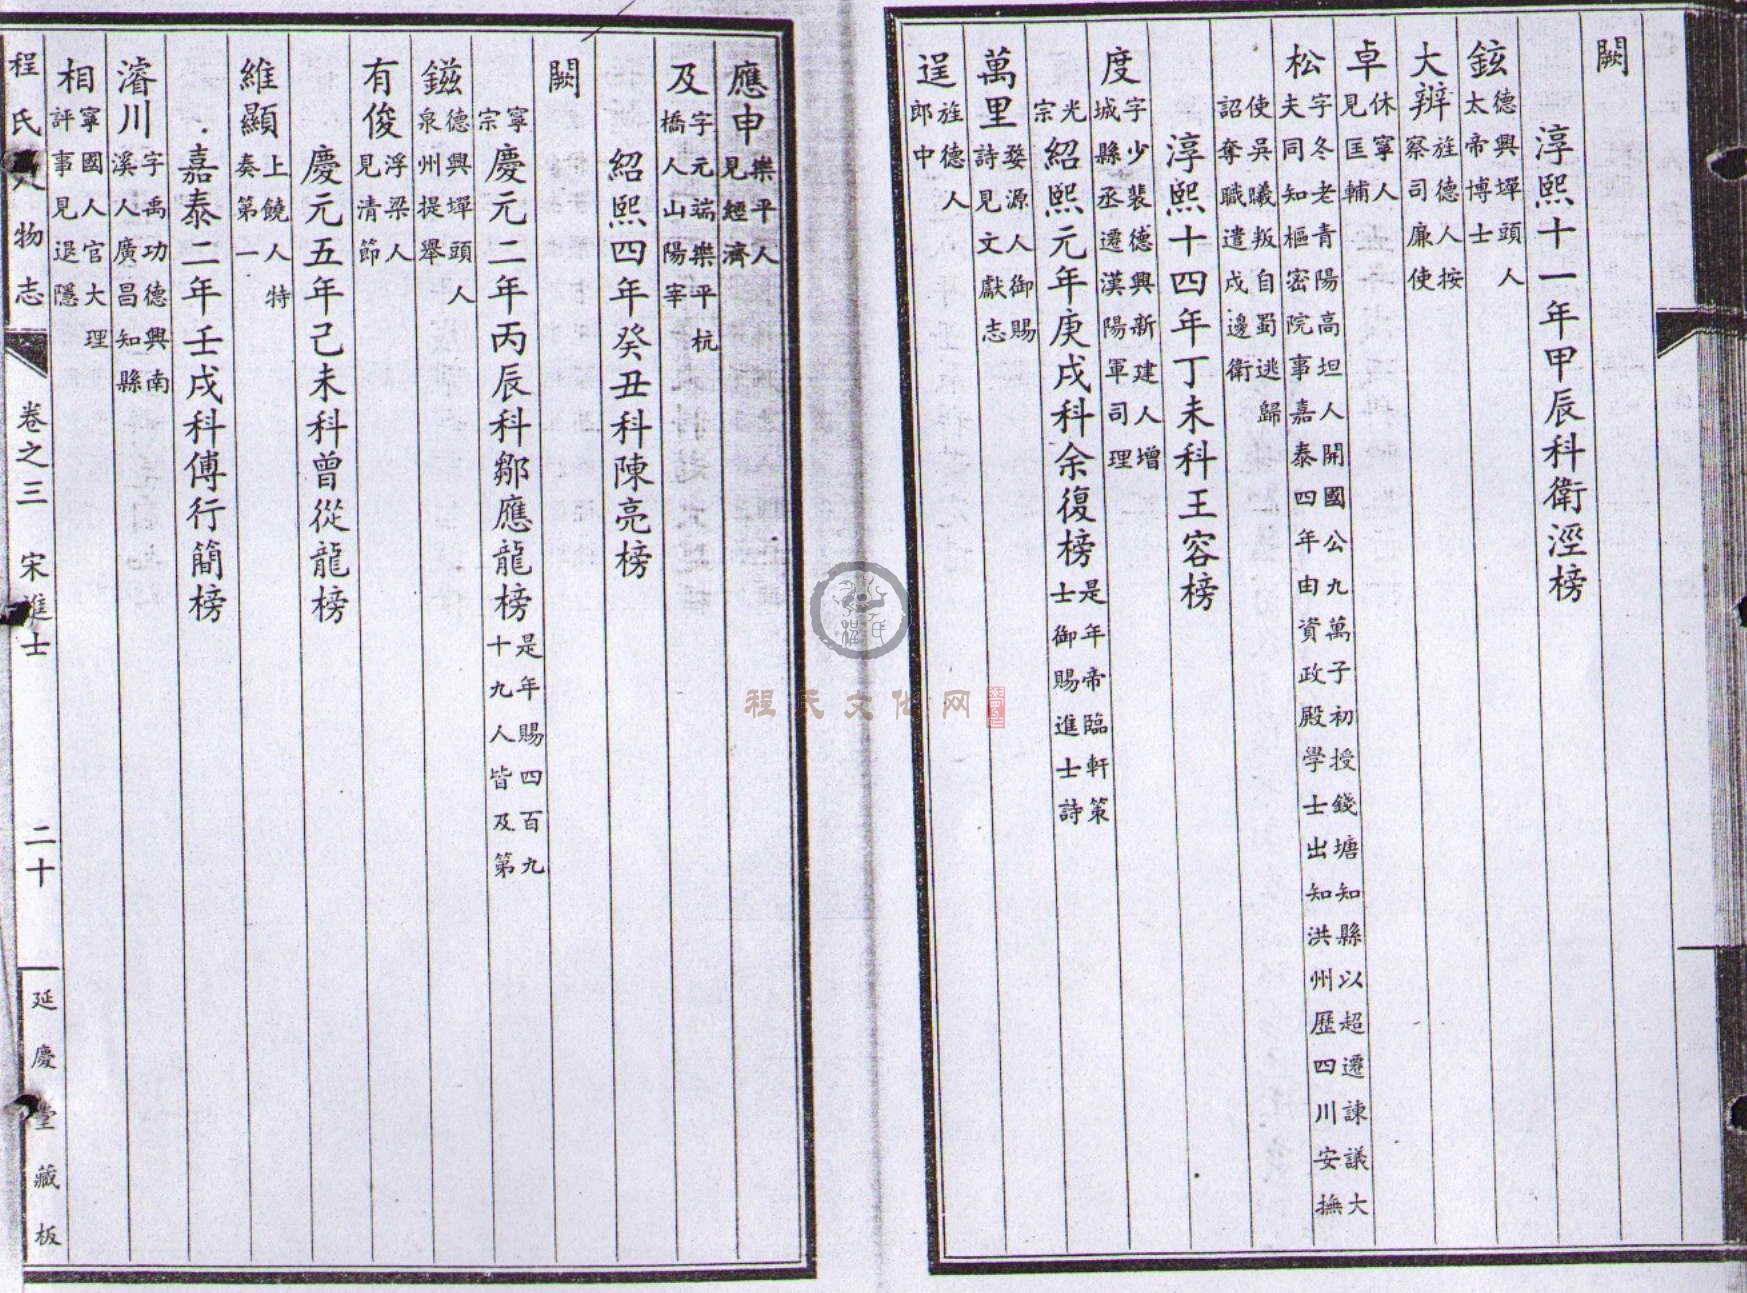 闕
淳熙十一年甲辰科衛涇榜
鉉 德興墠頭人太帝博士
大辩 旌德人按察司廉使
卓 休寧人見匡輔
松 字冬老青陽高坦人開國公九萬子初授錢塘知縣以超遷諫議大夫同知樞密院事嘉泰四年由資政殿學士出知洪州歷四川安撫
使吳曦叛自蜀逃歸詔奪職遣戍邊衛
淳熙十四年丁未科王容榜
度 字少裴德興新建人增城縣丞遷漢陽軍司理
光宗紹熙元年庚戌科余復榜 是年帝臨軒策士御賜進士詩
萬里 婺源人御賜詩見文獻志
逞 旌德人郎中
應申 樂平人見經濟
及 字元端樂平杭橋人山陽宰
紹熙四年癸丑科陳亮榜
闕
寧宗慶元二年丙辰科鄒應龍榜 是年賜四百九十九人皆及第
鎡 德興墠頭人泉州提舉
有俊 浮梁人見清節
慶元五年己未科曾從龍榜
維顯 上饒人特奏第一
嘉泰二年壬戌科傅行簡榜
濬川 字禹功德興南溪人廣昌知縣
相 寧國人官大理評事見退隱
程氏人物志 卷之三 宋進士 二十 延慶堂藏板
程氏文化网